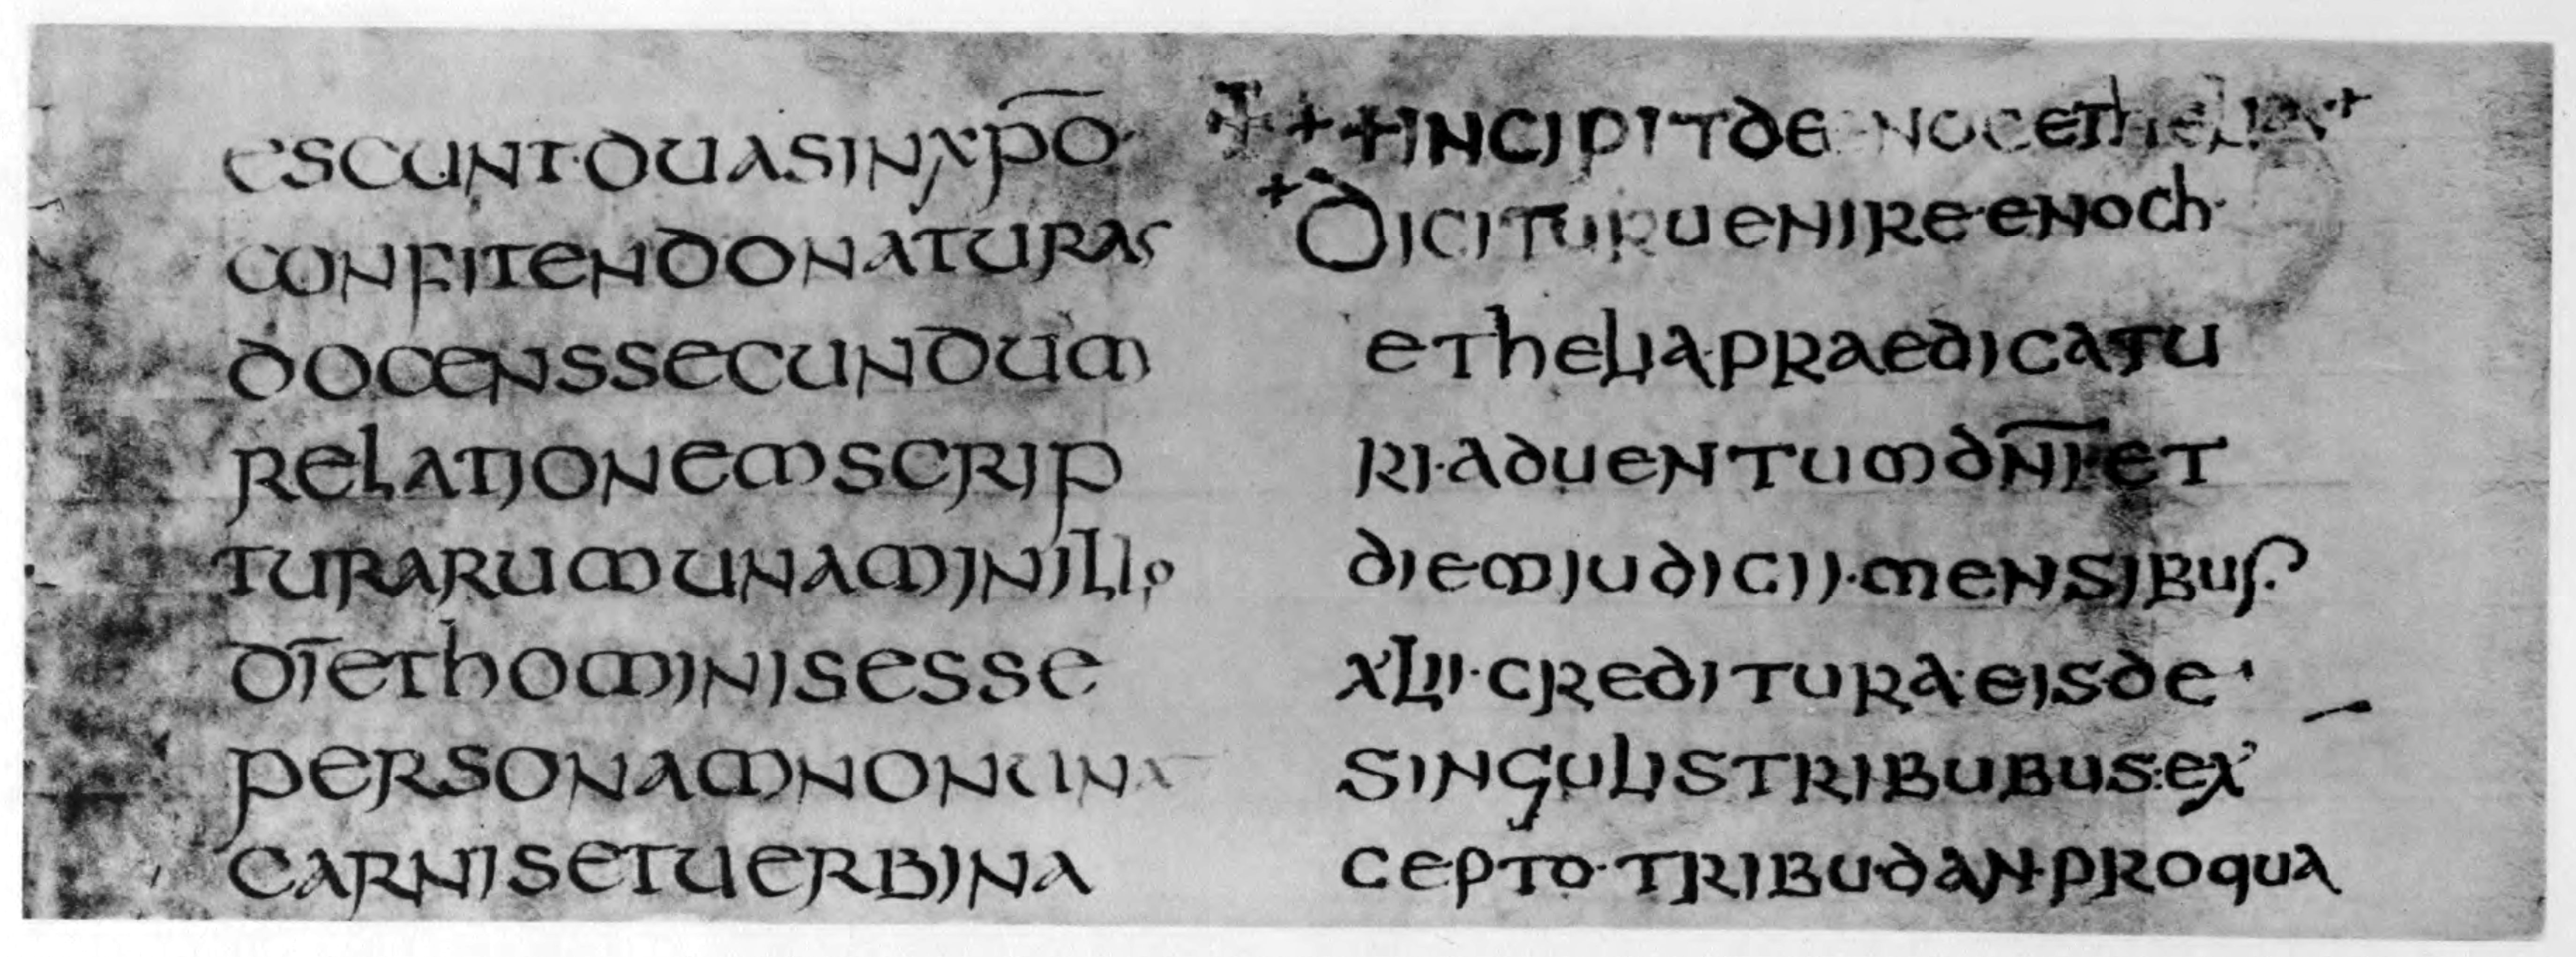 escunt·duasinx̅p̅o̅·
confitendonaturas
docenssecundum
relationemscrip
turarumunaminillo
d̅i̅ethominisesse
personamnonuna
carnisetuerbina
+ + +incipitde enocethelia+
+diciturueniree·enoch·
ethelia·praedicatu
ri·aduentumd̅n̅i̅·et
diemjudicii·mensibus·
xlii·creditura·eisde·
singulistribubus:ex
cepto·tribu·dan·proqua